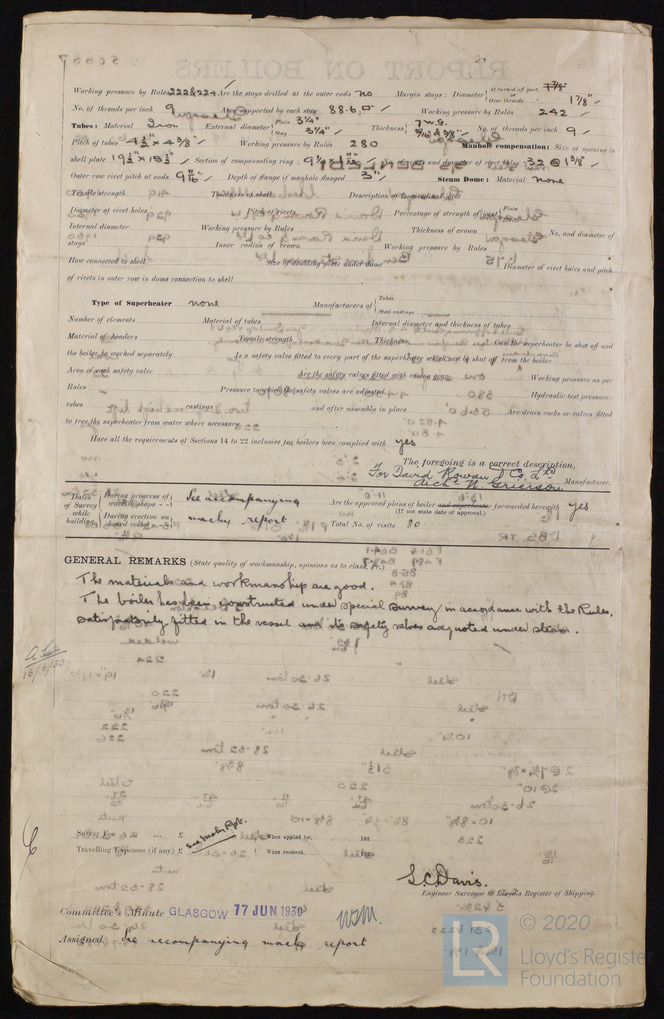 Working pressure by Rules 222 & 224 Are the stays drilled at the outer ends no Margin stays: Diameter { At turned off part, or Over threads 1 7/8"
No. of threads per inch 9 Area supported by each stay 88.6 □" Working pressure by Rules 242
Tubes: Material Iron External diameter { Plain 3¼" Stay 3¼" Thickness { 7 W.G. No. of threads per inch 9
Pitch of tubes 4½" × 4 3/8" Working pressure by Rules 280 Manhole compensation: Size of opening in
shell plate 19½" × 15½" Section of compensating ring No. of rivets and diameter of rivet holes 32 @ 1 3/8"
Outer row rivet pitch at ends 9 9/16" Depth of flange if manhole flanged 3" Steam Dome: Material none
Tensile strength Thickness of shell Description of longitudinal joint
Diameter of rivet holes Pitch of rivets Percentage of strength of joint { Plate
Internal diameter Working pressure by Rules Thickness of crown No. and diameter of
stays Inner radius of crown Working pressure by Rules
How connected to shell Size of doubling plate under dome Diameter of rivet holes and pitch
of rivets in outer row in dome connection to shell
Type of Superheater none Manufacturers of { Tubes Steel castings
Number of elements Material of tubes Internal diameter and thickness of tubes
Material of headers Tensile strength Thickness Can the superheater be shut off and
the boiler be worked separately Is a safety valve fitted to every part of the superheater which can be shut off from the boiler
Area of each safety valve Are the safety valves fitted with easing gear Working pressure as per
Rules Pressure to which the safety valves are adjusted Hydraulic test pressure:
tubes castings and after assembly in place Are drain cocks or valves fitted
to free the superheater from water where necessary
Have all the requirements of Sections 14 to 22 inclusive for boilers been complied with yes
The foregoing is a correct description,
For David Rowan & Co. Ld.
Archd. W. Grierson Manufacturer.
Dates of Survey while building { During progress of work in shops - - During erection on board vessel - - } See accompanying machy report
Are the approved plans of boiler and superheater forwarded herewith yes
(If not state date of approval.)
Total No. of visits 80
GENERAL REMARKS (State quality of workmanship, opinions as to class, &c.)
The materials and workmanship are good.
The boiler has been constructed under special survey in accordance with the Rules,
satisfactorily fitted in the vessel and its safety valves adjusted under steam.
16/6/30
Survey Fee ... ... £ see Machy Rpt. When applied for, 192
Travelling Expenses (if any) £ When received,
S.C. Davis.
Engineer Surveyor to Lloyd's Register of Shipping.
Committee's Minute GLASGOW 17 JUN 1930
Assigned See accompanying machy report
© 2020
Lloyd's Register
Foundation
LR